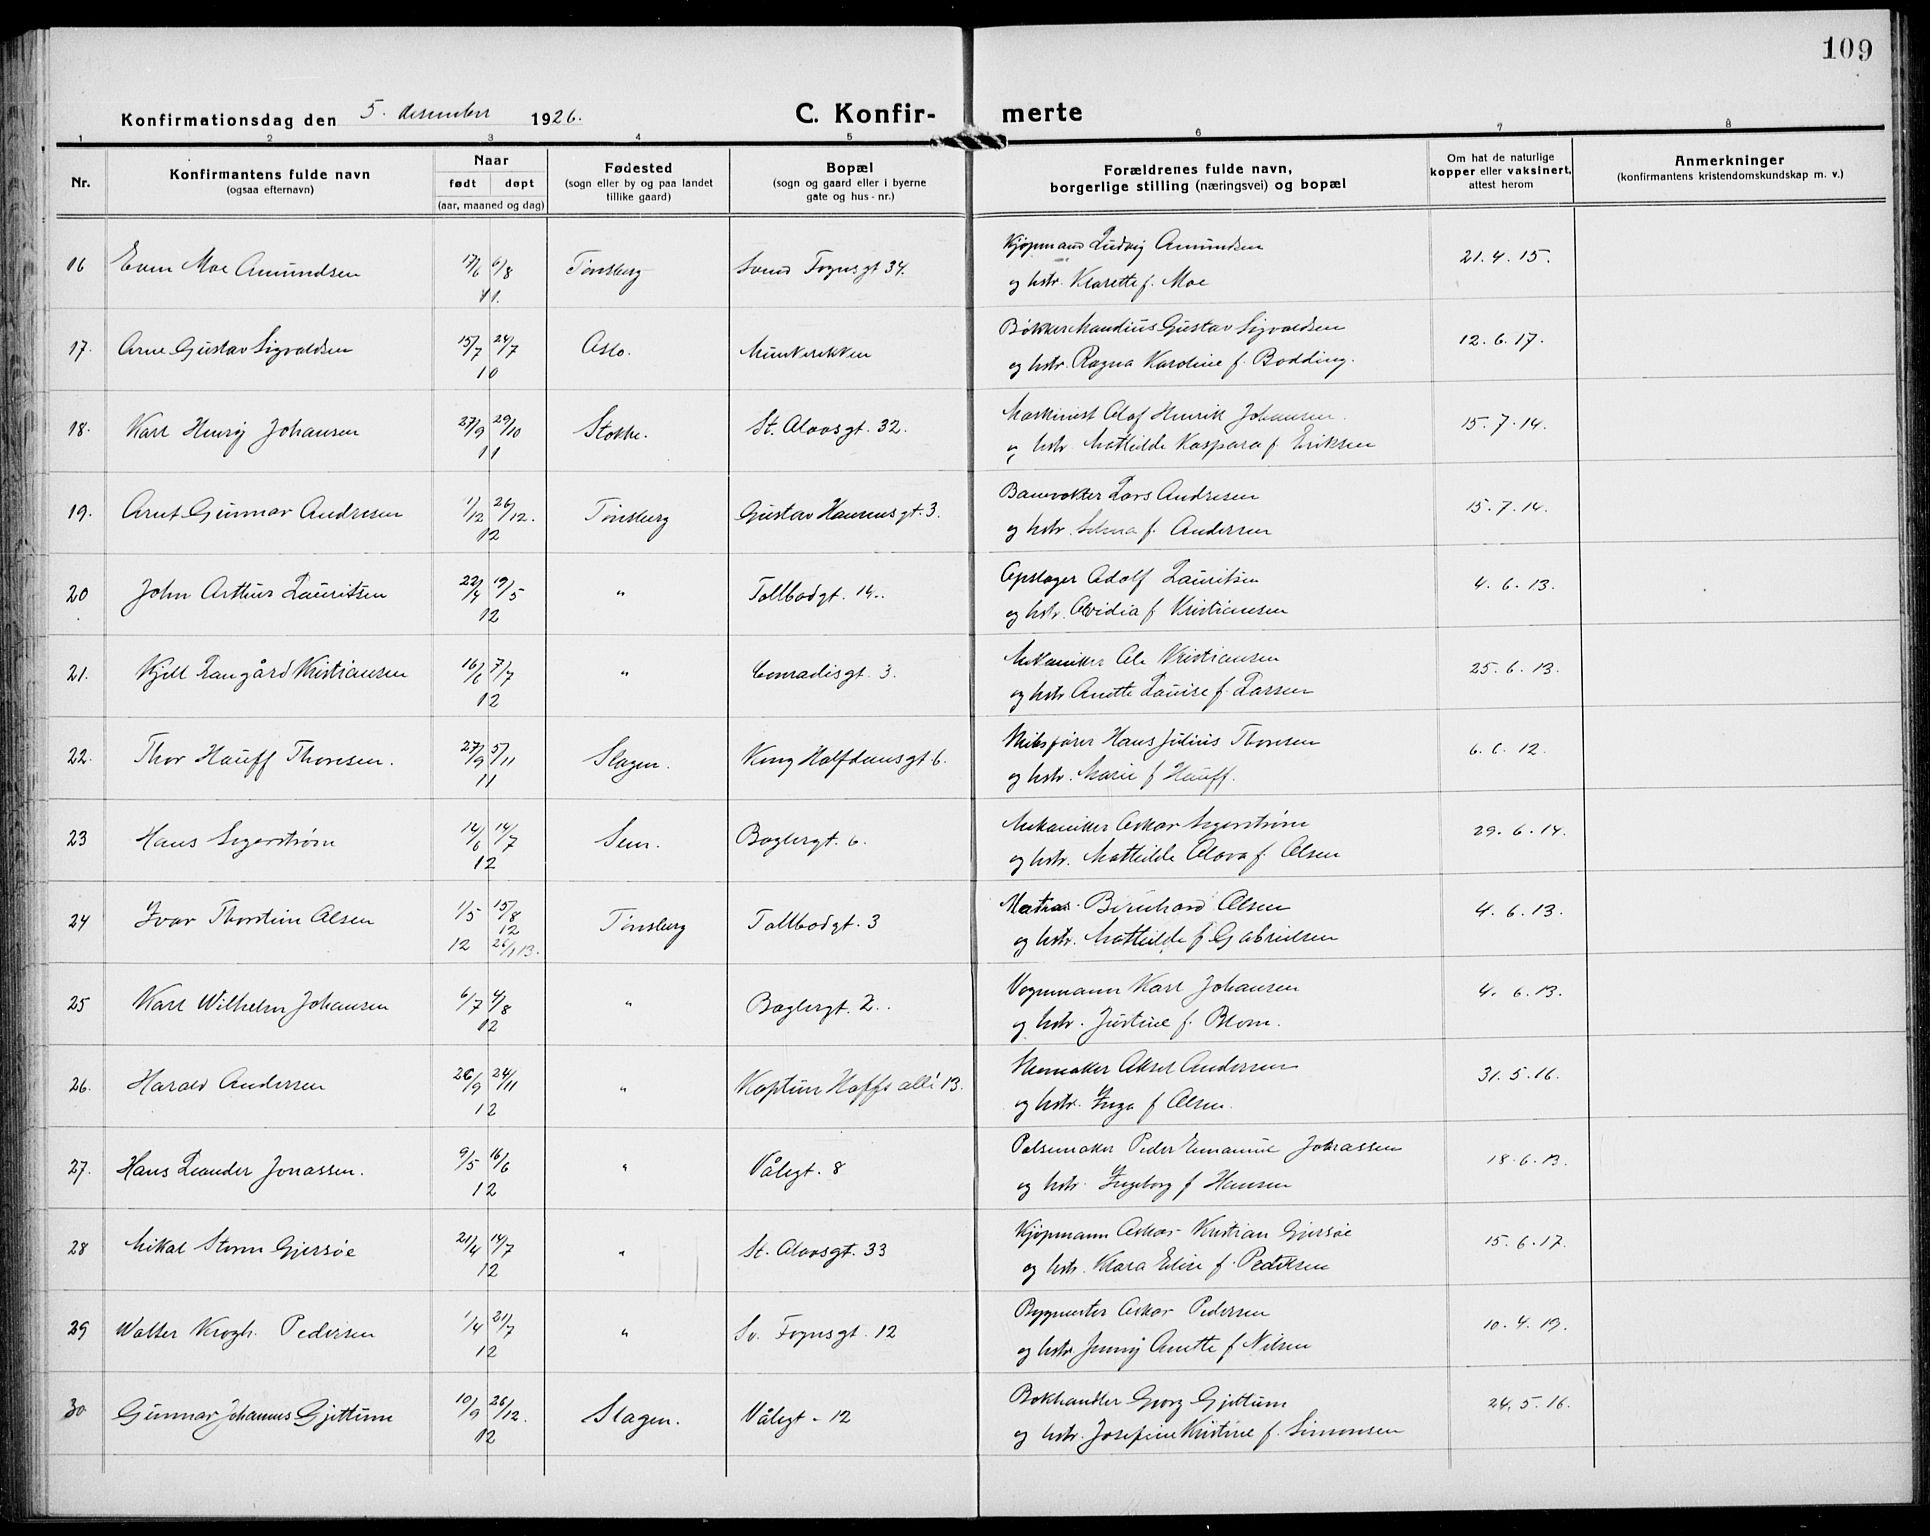 109
Konfirmationsdag den 5. desember 1926.
C. Konfir- merte
1 2 3 4 5 6 7 8
Nr.
Konfirmantens fulde navn
(ogsaa efternavn)
Naar
født døpt
(aar, maaned og dag)
Fødested
(sogn eller by og paa landet
tillike gaard)
Bopæl
(sogn og gaard eller i byerne
gate og hus-nr.)
Forældrenes fulde navn,
borgerlige stilling (næringsvei) og bopæl
Om hat de naturlige
kopper eller vaksinert,
attest herom
Anmerkninger
(konfirmantens kristendomskundskap m. v.)
16 Even Moe Amundsen 17/6 6/8 11. Tønsberg Svend Foynsgt 34. Kjøpmann Ludvig Amundsen 21. 4. 15.
og hstr. Klarette f. Moe
17. Arne Gustav Sigvaldsen 15/7 24/7 10 Oslo. Munkerekken Bøkker Mandius Gustav Sigvaldsen 12. 6. 17.
og hstr. Ragna Karoline f. Bodding.
18. Karl Henry Johansen 27/9 29/10 11 Stokke. St. Olavsgt. 32. Maskinist Olaf Henrik Johansen 15. 7. 14.
og hstr. Mathilde Kaspara f. Eriksen
19. Arnt Gunnar Andresen 1/12 26/12. 12 Tønsberg Gustav Hansensgt. 3. Banevokter Lars Andresen 15. 7. 14.
og hstr. Selma f. Andersen
20 John Arthur Lauritsen 22/4 19/5 12 " Tollbodgt. 14.. Opslager Adolf Lauritsen 4. 6. 13.
og hstr. Ovidia f. Kristiansen
21. Kjell Langård Kristiansen 16/6 7/7 12 " Conradisgt. 3. Mekaniker Ole Kristiansen 25. 6. 13.
og hstr. Anette Louise f. Larsen
22. Thor Hauff Thoresen. 27/9 5/11 11 Slagen. Kong Halfdansgt 6. Skibsfører Hans Julius Thoresen 6. 6. 12.
og hstr. Marie f. Hauff.
23 Hans Segerstrøm 14/6 14/7 12 Sem. Baglergt. 6. Mekaniker Oskar Segerstrøm 29. 6. 14.
og hstr. Mathilde Olava f. Olsen
24 Ivar Thorstein Olsen 1/5 12 15/8 12 26/1 13. Tønsberg Tollbodgt. 3 Matros Bernhard Olsen 4. 6. 13.
og hstr. Mathilde f. Gabrielsen
25 Karl Wilhelm Johansen 6/7 4/8 12 " Baglergt. 2.. Vognmann Karl Johansen 4. 6. 13.
og hstr. Justine f. Blom.
26. Harald Andersen 26/9 24/11 12 " Kaptein Hoffs allé 13. Skomaker Aksel Andersen 31. 5. 16.
og hstr. Inga f. Olsen.
27. Hans Leander Jonassen. 9/5 16/6 12 " Vålegt. 8 Pølsemaker Peder Emanuel Johassen 18. 6. 13.
og hstr. Ingeborg f. Hansen
28 Mikal Storm Gjersøe 21/4 14/7 12 " St. Olavsgt. 33 Kjøpmann Oskar Kristian Gjersøe 15. 6. 17.
og hstr. Klara Elise f. Pedersen
29 Walter Krogh. Pedersen 1/4 21/7 12 " Sv. Foynsgt. 12 Byggmester Oskar Pedersen 10. 4. 19.
og hstr. Jenny Anette f. Nilsen
30 Gunnar Johannes Gjettum 10/9 26/12. 12 Slagen. Vålegt - 12 Bokhandler Georg Gjettum 24. 5. 16.
og hstr. Josefine Kristine f. Simonsen